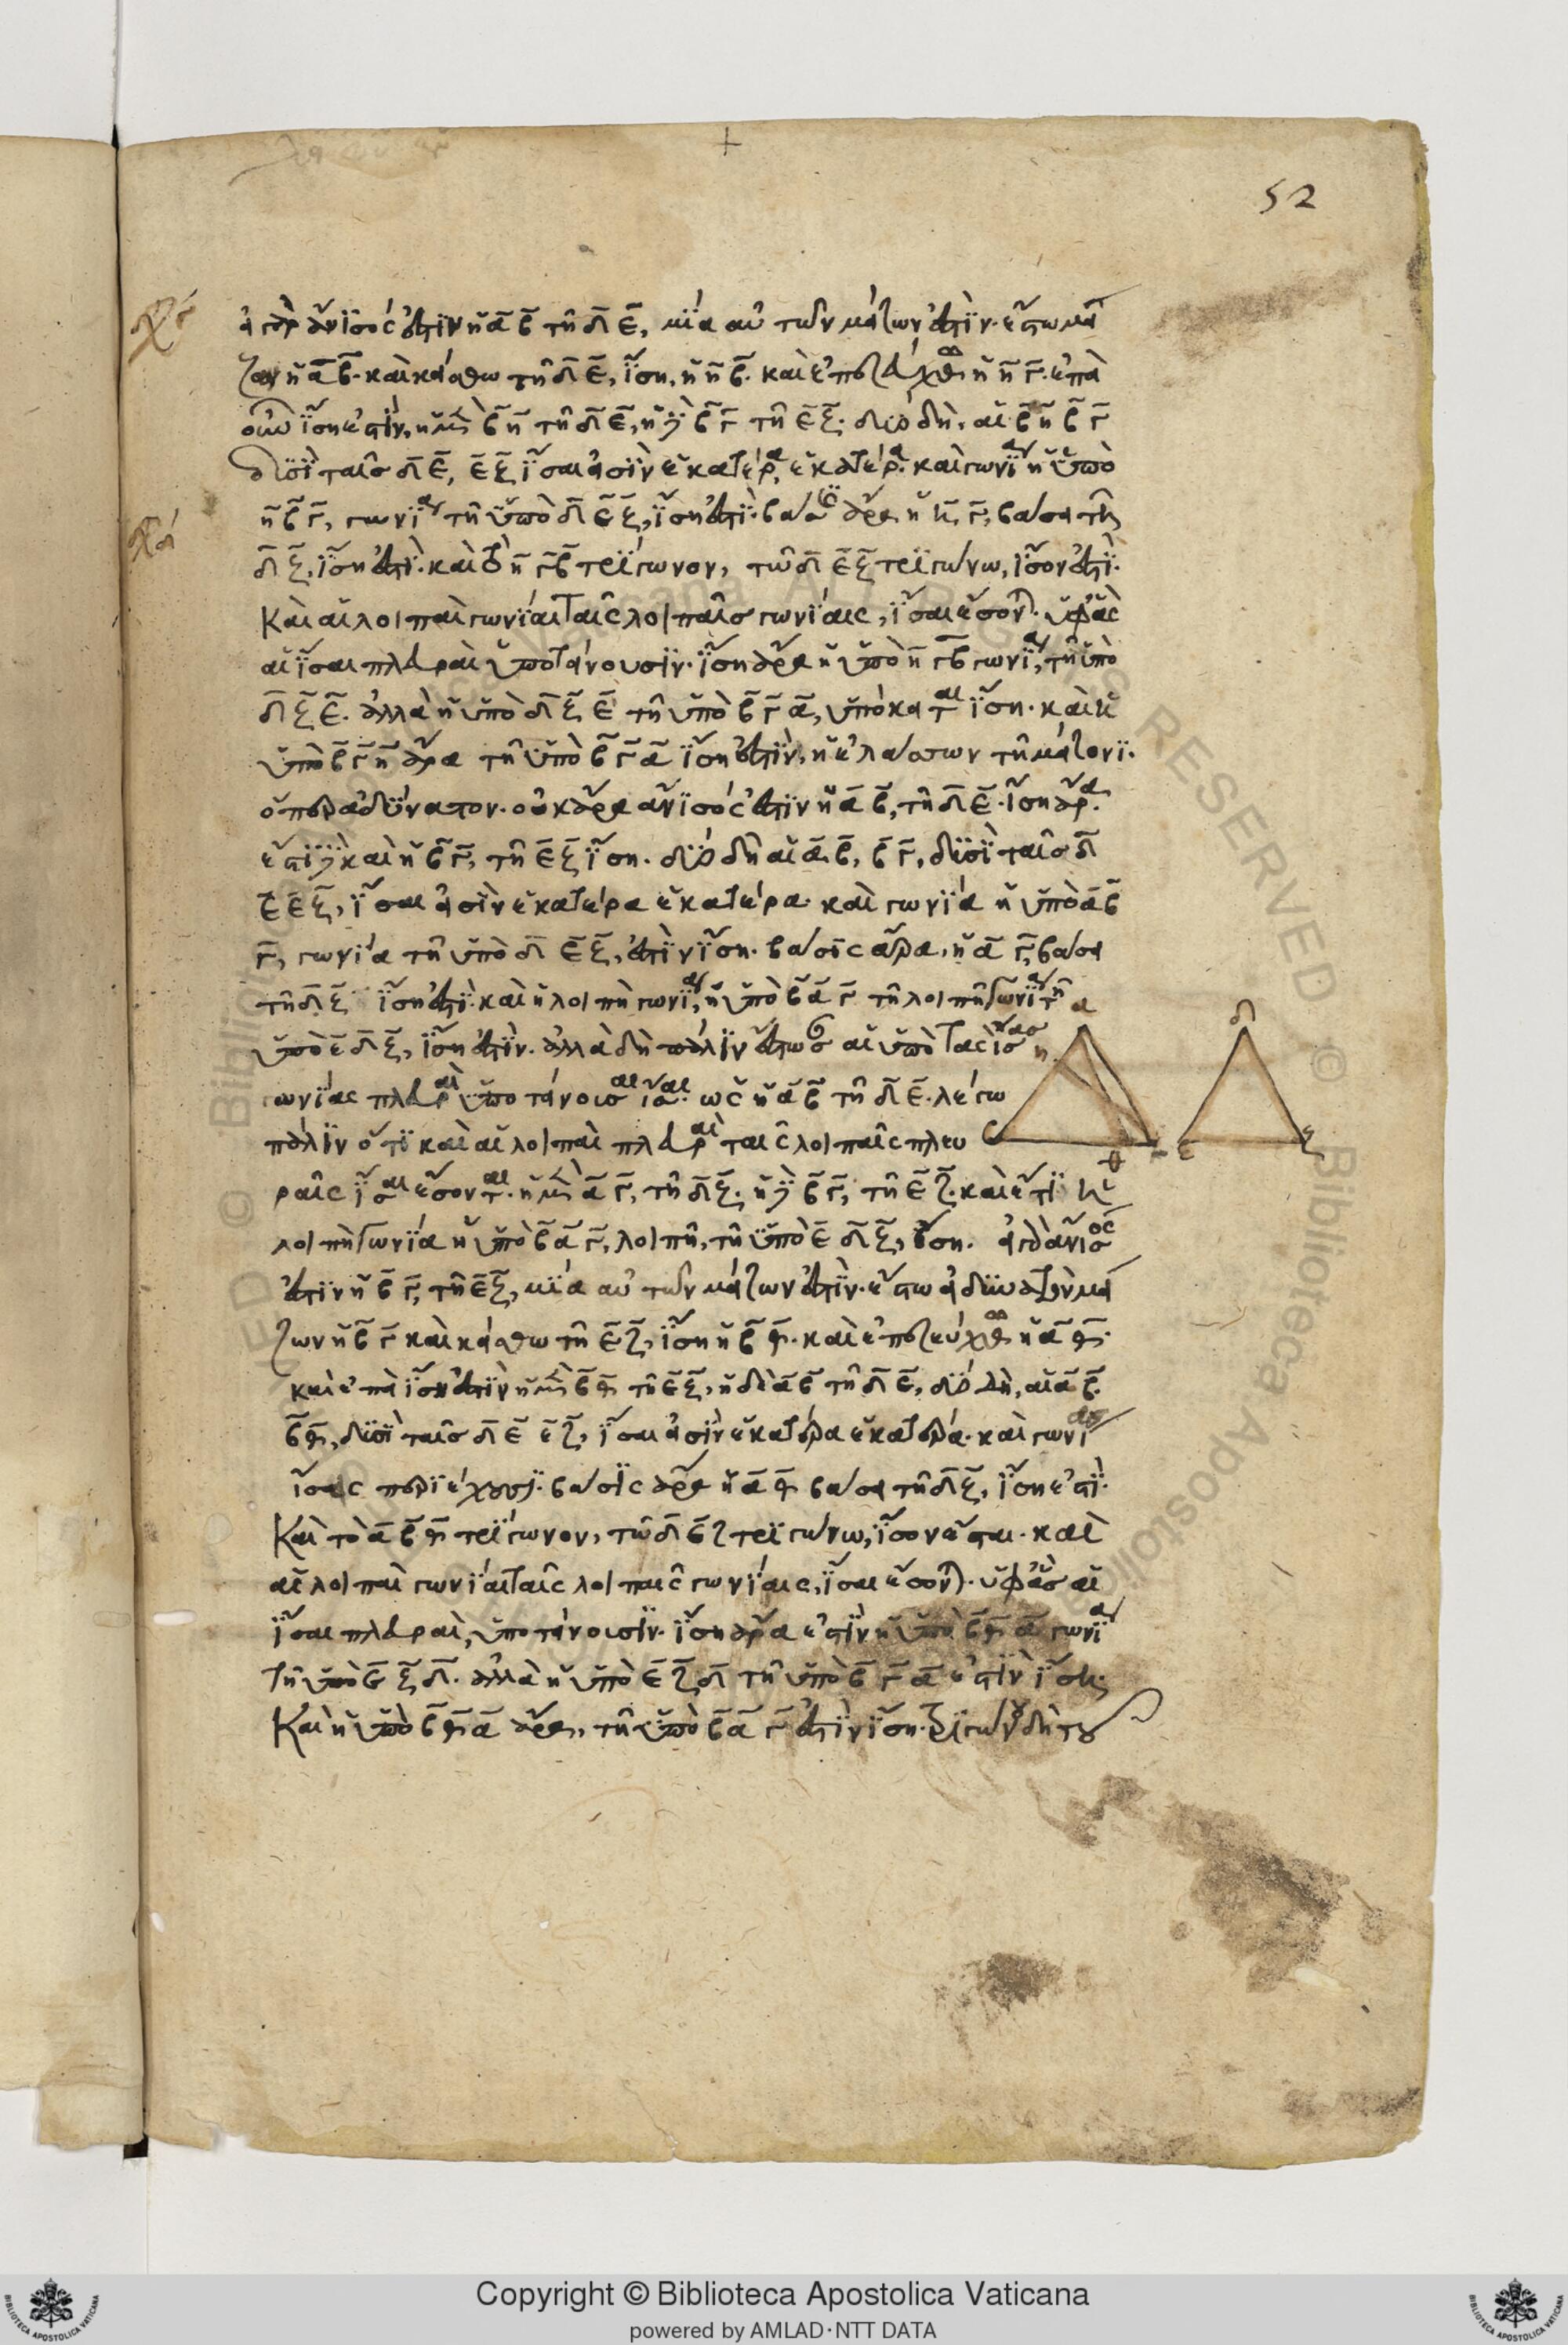 52
εἰ γὰρ ἄνισός ἐστιν ἡ α β τῆ δ ε, μία αὐτῶν μείζων ἐστίν. ἔστω μεί
ζων ἡ α β. καὶ κείσθω τῆ δ ε, ἴση, ἡ η β. καὶ ἐπεζεύχθω ἡ η γ. ἐπεὶ
οὖν ἴση ἐστὶν, ἡ μὲν β η τῆ δ ε, ἡ δὲ β γ τῆ ε ζ. δύο δὴ, αἱ β η β γ
δυσὶ ταῖς δ ε, ε ζ ἴσαι εἰσὶν ἑκατέρα, ἑκατέρα. καὶ γωνία ἡ ὑπὸ
η β γ, γωνία τῆ ὑπὸ δ ε ζ, ἴση ἐστί. βάσις ἄρα ἡ η γ, βάσει τῆ
δ ζ, ἴση ἐστί. καὶ τὸ η γ β τρίγωνον, τῶ δ ε ζ τριγώνω, ἴσον ἐστί.
καὶ αἱ λοιπαὶ γωνίαι ταῖς λοιπαῖς γωνίαις, ἴσαι ἔσονται. ὑφ' ἃς
αἱ ἴσαι πλευραὶ ὑποτείνουσιν. ἴση ἄρα ἡ ὑπὸ η γ β γωνία, τῆ ὑπὸ
δ ζ ε. ἀλλὰ ἡ ὑπὸ δ ζ ε τῆ ὑπὸ β γ α, ὑπόκειται ἴση. καὶ ἡ
ὑπὸ β γ η ἄρα τῆ ὑπὸ β γ α ἴση ἐστὶν, ἡ ἐλάσσων τῆ μείζονι.
ὅπερ ἀδύνατον. οὐκ ἄρα ἄνισός ἐστιν ἡ α β, τῆ δ ε. ἴση ἄρα.
ἔστι δὲ καὶ ἡ β γ, τῆ ε ζ ἴση. δύο δὴ αἱ α β, β γ, δυσὶ ταῖς δ
ε ε ζ, ἴσαι εἰσὶν ἑκατέρα ἑκατέρα. καὶ γωνία ἡ ὑπὸ α β
γ, γωνία τῆ ὑπὸ δ ε ζ, ἐστὶν ἴση. βάσις ἄρα, ἡ α γ, βάσει
τῆ δ ζ ἴση ἐστί. καὶ ἡ λοιπὴ γωνία, ἡ ὑπὸ β α γ τῆ λοιπῆ γωνία τῆ
ὑπὸ ε δ ζ, ἴση ἐστίν. ἀλλὰ δὴ πάλιν ἔστωσαν αἱ ὑπὸ τὰς ἴσας
γωνίας πλευραὶ ὑποτείνουσαι ἴσαι. ὡς ἡ α β τῆ δ ε. λέγω
πάλιν ὅτι καὶ αἱ λοιπαὶ πλευραὶ ταῖς λοιπαῖς πλευ
ραῖς ἴσαι ἔσονται. ἡ μὲν α γ, τῆ δ ζ. ἡ δὲ β γ, τῆ ε ζ. καὶ ἔτι ἡ
λοιπὴ γωνία ἡ ὑπὸ β α γ, λοιπῆ, τῆ ὑπὸ ε δ ζ, ἴση. εἰ γὰρ ἄνισος
ἐστιν ἡ β γ, τῆ ε ζ, μία αὐτῶν μείζων ἐστίν. ἔστω εἰ δυνατὸν μεί
ζων ἡ β γ καὶ κείσθω τῆ ε ζ, ἴση ἡ β θ. καὶ ἐπεζεύχθω ἡ α θ.
καὶ ἐπεὶ ἴση ἐστὶν ἡ μὲν β θ τῆ ε ζ, ἡ δὲ α β τῆ δ ε, δύο δὴ, αἱ α β.
β θ, δυσὶ ταῖς δ ε ε ζ, ἴσαι εἰσὶν ἑκατέρα ἑκατέρα. καὶ γωνίας
ἴσας περιέχουσι. βάσις ἄρα ἡ α θ βάσει τῆ δ ζ, ἴση ἐστί.
καὶ τὸ α β θ τρίγωνον, τῶ δ ε ζ τριγώνω, ἴσον ἐστι. καὶ
αἱ λοιπαὶ γωνίαι ταῖς λοιπαῖς γωνίαις, ἴσαι ἔσονται. ὑφ' ἃς αἱ
ἴσαι πλευραὶ, ὑποτείνουσιν. ἴση ἄρα ἐστὶν ἡ ὑπὸ β θ α γωνία
τῆ ὑπὸ ε ζ δ. ἀλλὰ ἡ ὑπὸ ε ζ δ τῆ ὑπὸ β γ α ἐστὶν ἴση.
καὶ ἡ ὑπὸ β θ α ἄρα, τῆ ὑπὸ β α γ ἐστὶν ἴση. τριγώνου δὴ τοῦ
α
η
β
θ
δ
ε
ζ
Copyright © Biblioteca Apostolica Vaticana
powered by AMLAD·NTT DATA